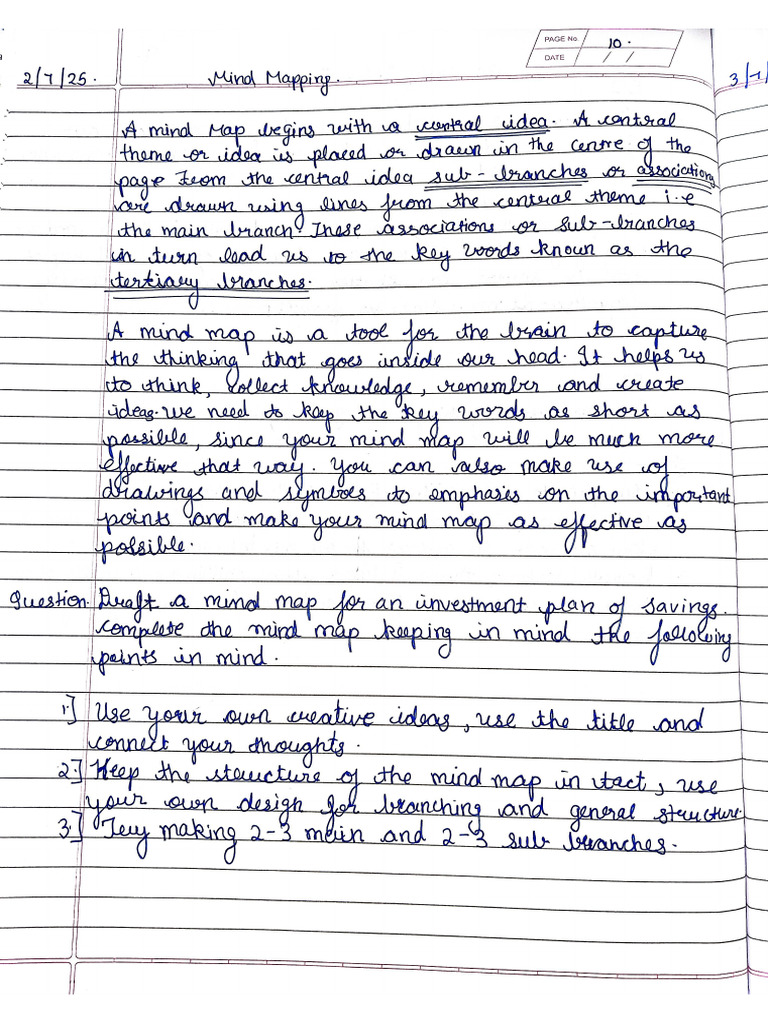 PAGE No. 10.
DATE / /
2/7/25. Mind Mapping. 3/7/
A mind Map begins with a central idea. A central
theme or idea is placed or drawn in the centre of the
page From the central idea sub-branches or associations
are drawn using lines from the central theme i.e
the main branch. These associations or sub-branches
in turn lead us to the key words known as the
tertiary branches.
A mind map is a tool for the brain to capture
the thinking that goes inside our head. It helps us
to think, collect knowledge, remember and create
ideas. we need to keep the key words as short as
possible, since your mind map will be much more
effective that way. You can also make use of
drawings and symbols to emphases on the important
points and make your mind map as effective as
possible.
Question. Draft a mind map for an investment plan of savings.
complete the mind map keeping in mind the following
points in mind.
1.] Use your own creative ideas, use the title and
connect your thoughts.
2.] Keep the structure of the mind map in tact, use
your own design for branching and general structure.
3.] Try making 2-3 main and 2-3 sub branches.